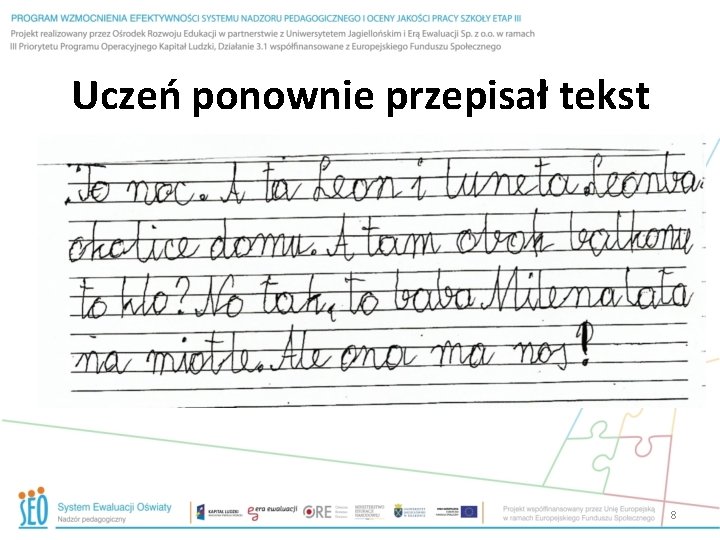 PROGRAM WZMOCNIENIA EFEKTYWNOŚCI SYSTEMU NADZORU PEDAGOGICZNEGO I OCENY JAKOŚCI PRACY SZKOŁY ETAP III
Projekt realizowany przez Ośrodek Rozwoju Edukacji w partnerstwie z Uniwersytetem Jagiellońskim i Erą Ewaluacji Sp. z o.o. w ramach
III Priorytetu Programu Operacyjnego Kapitał Ludzki, Działanie 3.1 współfinansowane z Europejskiego Funduszu Społecznego
Uczeń ponownie przepisał tekst
.To noc. A ta Leon i luneta. Leon ba
okolice domu. A tam obok balkonu
to kto? No tak, to baba Milena lata
na miotle. Ale ona ma nos!
SEO
System Ewaluacji Oświaty
Nadzór pedagogiczny
KAPITAŁ LUDZKI
era ewaluacji
ORE
Projekt współfinansowany przez Unię Europejską
w ramach Europejskiego Funduszu Społecznego
8